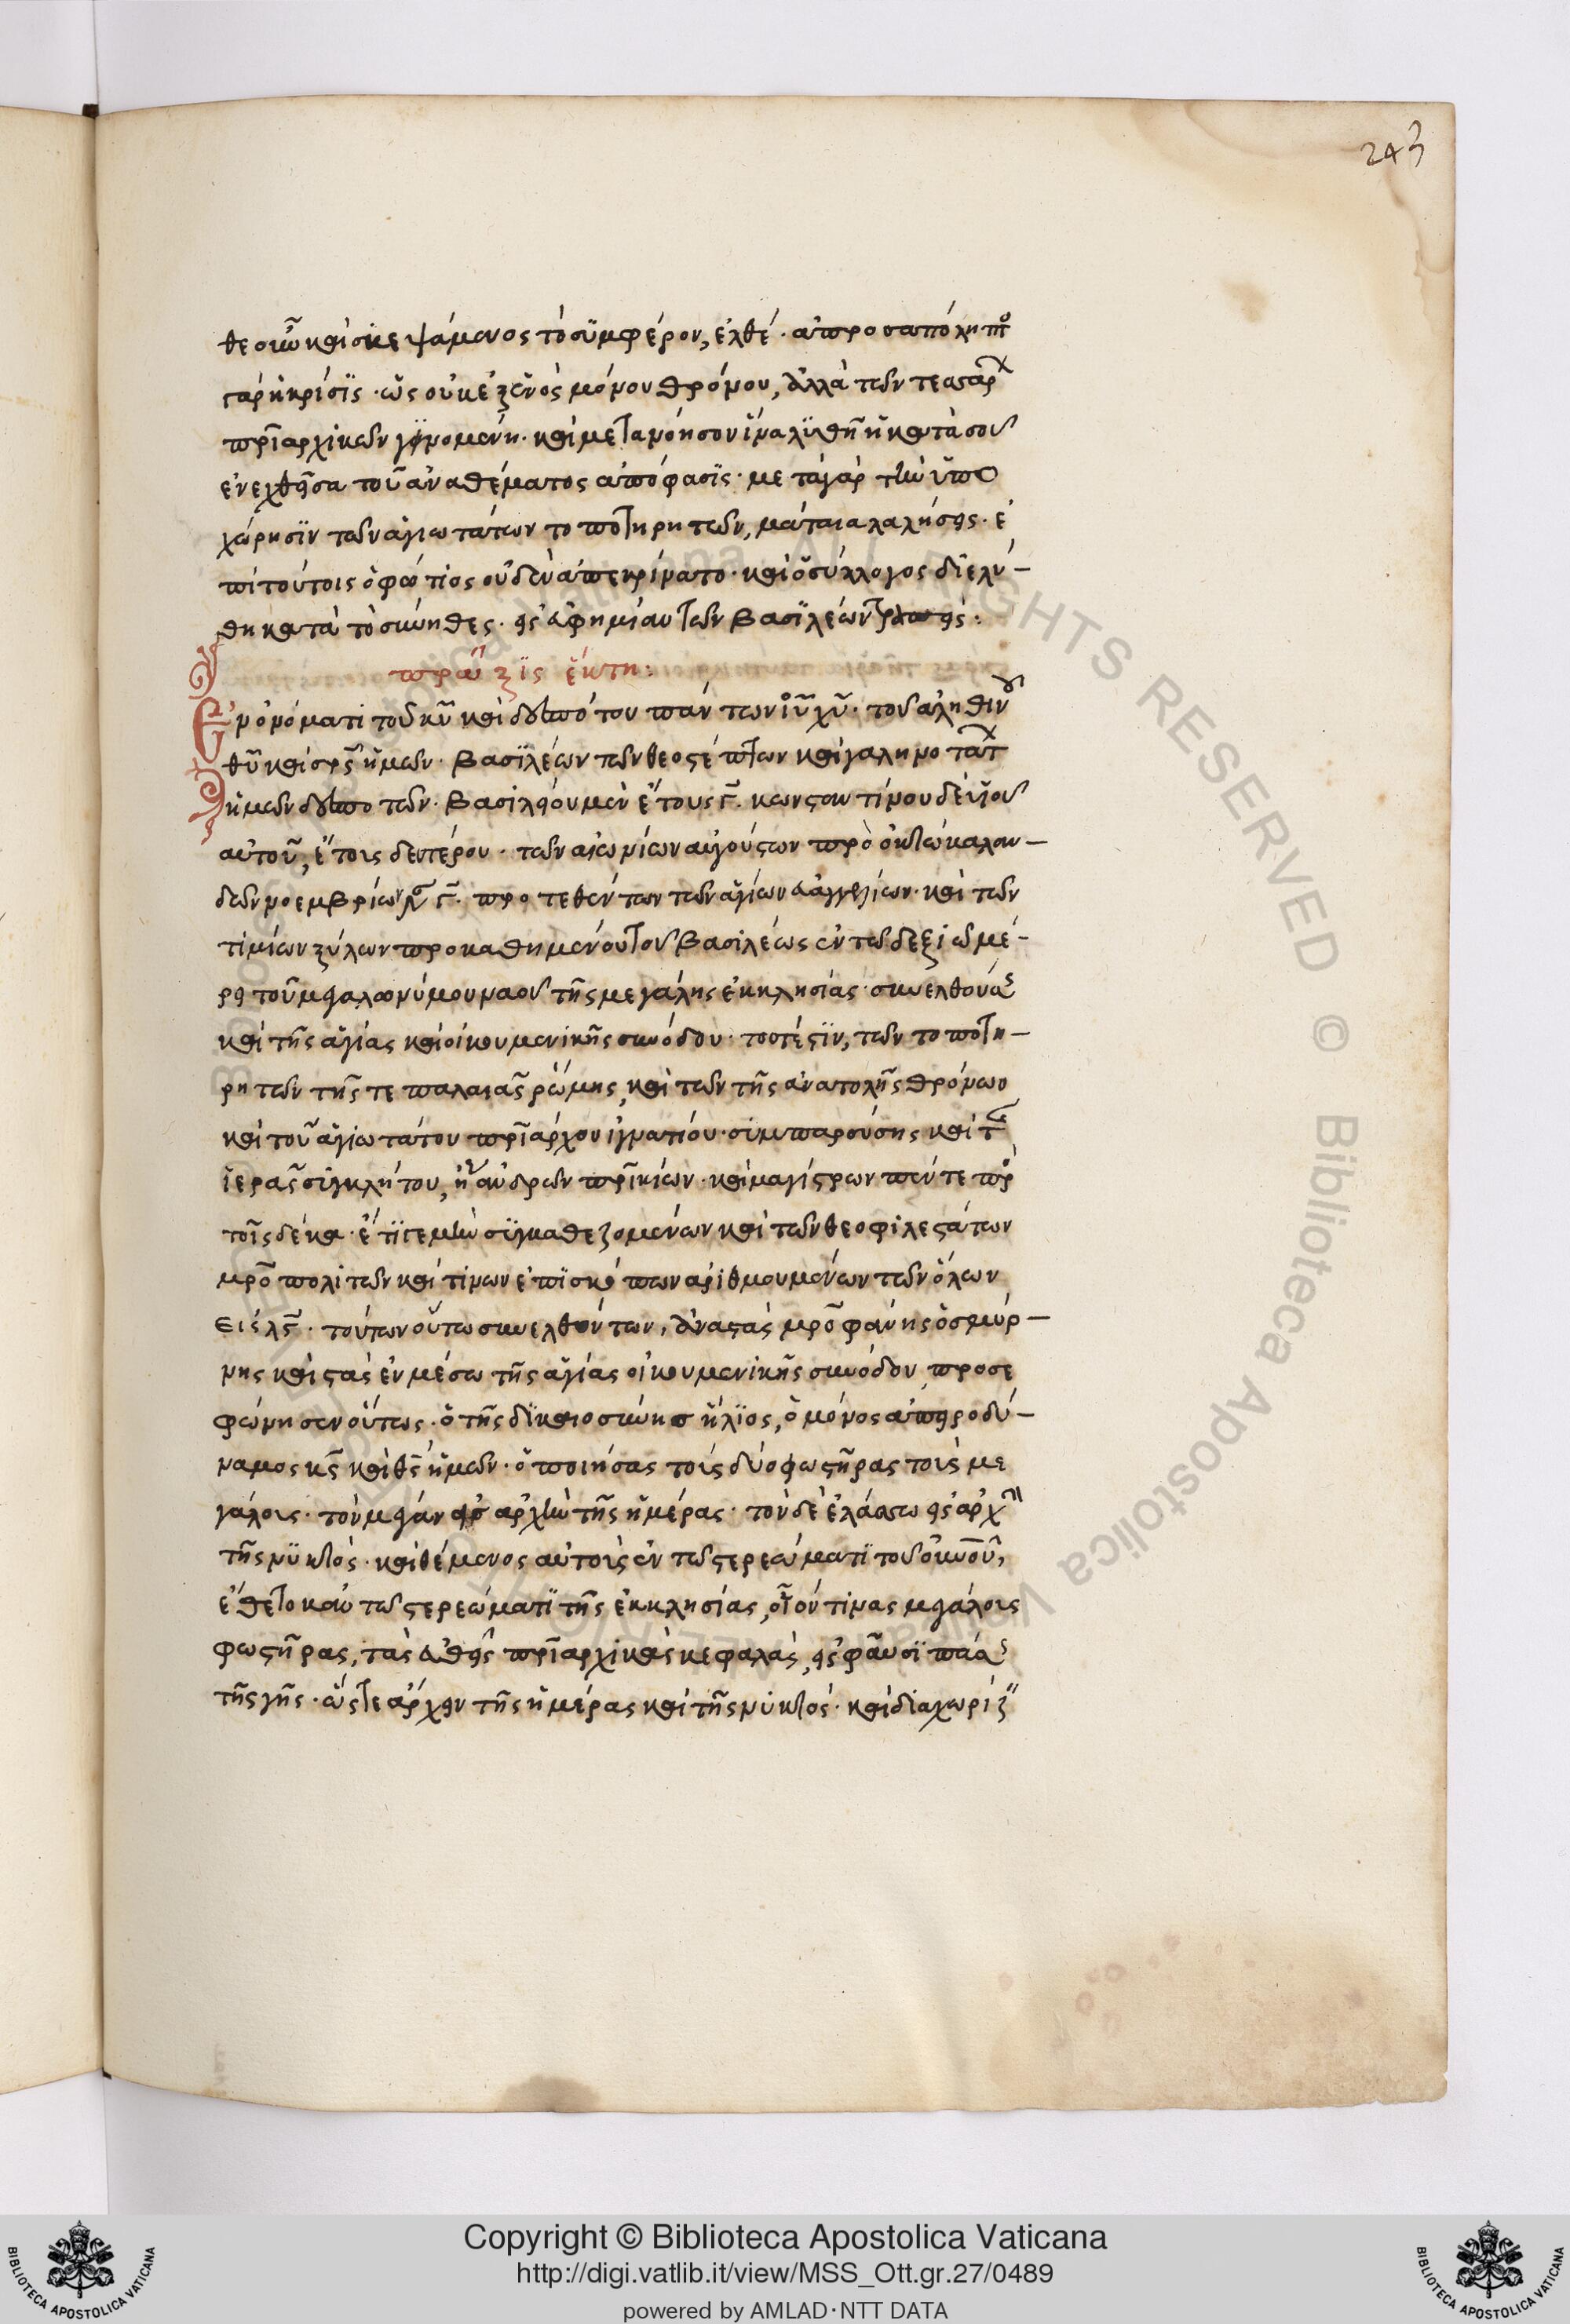 243
θεσιῶ καὶ σκεψάμενος τὸ συμφέρον, ἐλθέ. ἀπροσωπόληπτος
γάρ ἡ κρίσϊς. ὡς οὐκ ἐξ ἑνὸς μόνου θρόνου, ἀλλὰ τῶν τεσσάρων
πριαρχικῶν γινομένη. καὶ μετανόησον ἵνα λυθῇ ἡ κατὰ σοῦ
ἐνεχθεῖσα τοῦ ἀναθέματος ἀπόφασϊς. μετὰ γὰρ τὴν ὑπο
χώρησϊν τῶν ἁγιωτάτων τοποτηρητῶν, μάταια λαλήσεις. ἐ
πὶ τούτοις ὁ φώτιος οὐδὲν ἀπεκρίνατο. καὶ ὁ σύλλογος διελύ-
θη κατὰ τὸ σύνηθες. εἰς εὐφημίαν τῶν βασϊλέων τραπείς:
πράξϊς ἕκτη:
Ἐν ὀνόματι τοῦ κυ καὶ δεσπότου πάντων ιυ χυ. τοῦ ἀληθινοῦ
θυ καὶ σρς ἡμῶν. βασϊλέων τῶν θεοστέπτων καὶ γαληνοτάτων
ἡμῶν δεσποτῶν. βασιλείου μὲν ἔτους γ. κωνσταντίνου δὲ υἱοῦ
αὐτοῦ, ἔτοις δευτέρου. τῶν αἰωνίων αὐγούστων πρὸ ὀκτὼ καλαν-
δῶν νοεμβρίων γ. προτεθέντων τῶν ἁγίων εὐαγγελίων. καὶ τῶν
τιμίων ξύλων προκαθημένου τοῦ βασιλέως ἐν τῶ δεξιῶ μέ-
ρει τοῦ μεγαλωνύμου ναοῦ τῆς μεγάλης ἐκκλησίας. συνελθούσης
καὶ τῆς ἁγίας καὶ οἰκουμενικῆς συνόδου. τουτέστϊν, τῶν τοποτη-
ρητῶν τῆς τε παλαιᾶς ῥώμης, καὶ τῶν τῆς ἀνατολῆς θρόνων
καὶ τοῦ ἁγιωτάτου πριάρχου ἰγνατίου. συμπαρούσης καὶ τῆς
ἱερᾶς συγκλήτου, ἤγουν ἀνδρῶν πρικίων. καὶ μαγίστρων πέντε πρὸς
τοῖς δέκα. ἔτϊ γε μὴν συγκαθεζομένων καὶ τῶν θεοφιλεστάτων
μροπολιτῶν καί τινων ἐπϊσκόπων ἀριθμουμένων τῶν ὅλων
εἰς λς. τούτων οὕτω συνελθόντων, ἀναστὰς μροφάνης ὁ σμύρ-
νης καὶ στὰς ἐν μέσω τῆς ἁγίας οἰκουμενικῆς συνόδου, προσε
φώνησεν οὕτως. ὁ τῆς δϊκαιοσύνης ἥλϊος, ὁ μόνος ἀπειροδύ-
ναμος κς καὶ θς ἡμῶν. ὁ ποιήσας τοὺς δύο φωστῆρας τοὺς με
γάλους. τὸν μέγαν εἰς ἀρχὴν τῆς ἡμέρας. τὸν δὲ ἐλάσσω εἰς ἀρχὴν
τῆς νϋκτὸς. καὶ θέμενος αὐτοὺς ἐν τῶ στερεώματϊ τοῦ οὐνοῦ,
ἔθετο κἀν τῶ στερεώματϊ τῆς ἐκκλησίας, οἷόν τινας μεγάλους
φωστῆρας, τὰς εὐθεῖς πριαρχικὰς κεφαλὰς, εἰς φαῦσϊ πάσης
τῆς γῆς. ὥστε ἄρχειν τῆς ἡμέρας καὶ τῆς νυκτὸς. καὶ διαχωρίζειν
Copyright © Biblioteca Apostolica Vaticana
http://digi.vatlib.it/view/MSS_Ott.gr.27/0489
powered by AMLAD·NTT DATA
BIBLIOTECA APOSTOLICA VATICANA
BIBLIOTECA APOSTOLICA VATICANA